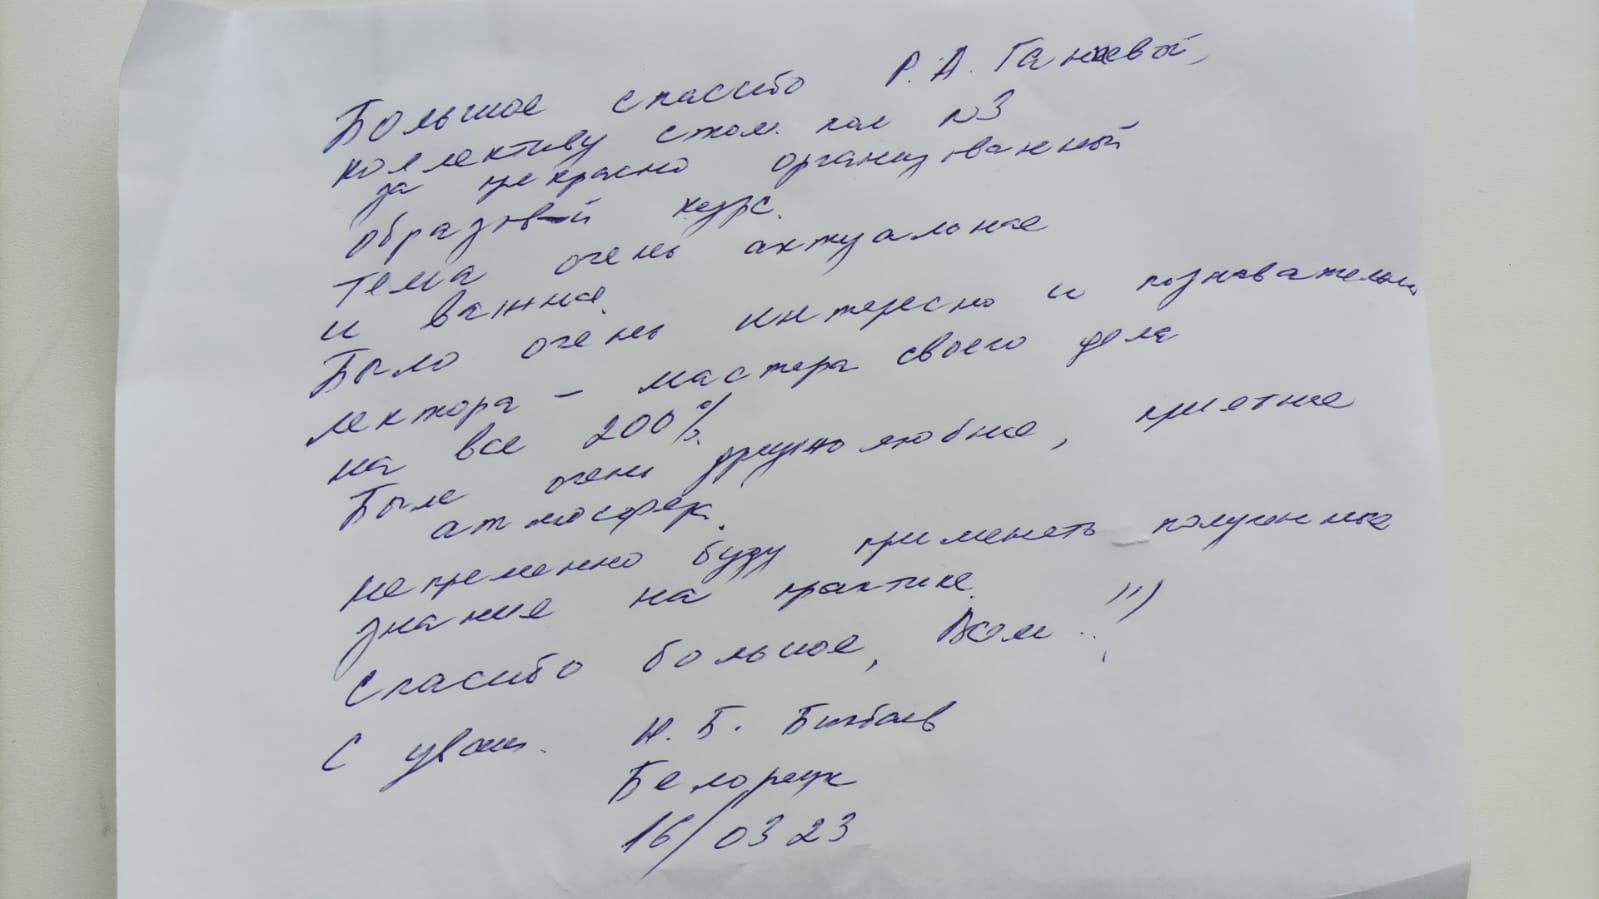 Большое спасибо Р. А. Ганиевой,
коллективу стом. пол №3
за прекрасно организованный
образов-й курс.
Тема очень актуальная
и важная.
Было очень интересно и познавательно
лектора – мастера своего дела
на все 200%.
Была очень дружелюбная, приятная
атмосфера.
Непременно буду применять полученные
знания на практике.
Спасибо большое, Всем !!!
С уваж. Н. Б.
Белорецк
16/03 23